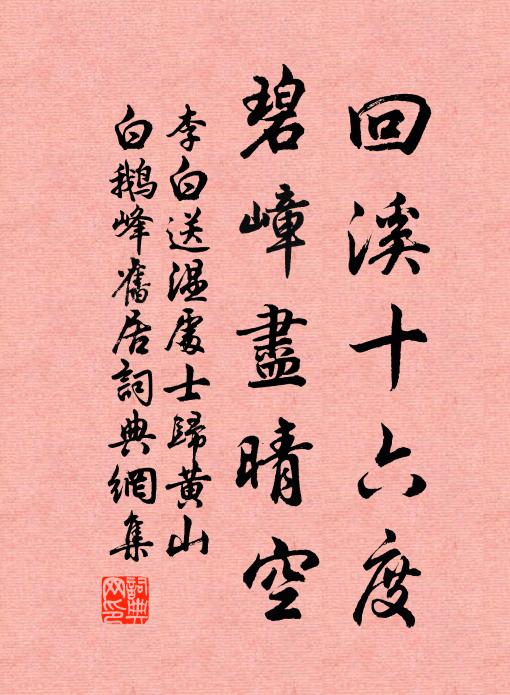 回溪十六度
碧嶂盡晴空
李白送温處士歸黄山
白鵝峰舊居詞典網集
詞典
网印